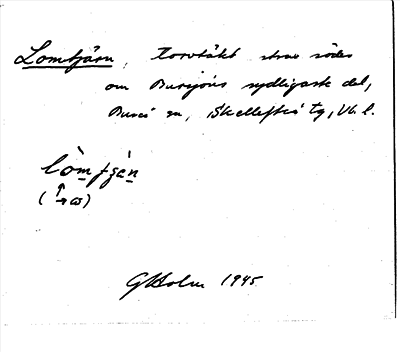 Lomtjärn, torvtäkt strax söder
om Bursjöns sydligaste del,
Bureå sn, Skellefteå tg, Vb. l.
GHolm 1945